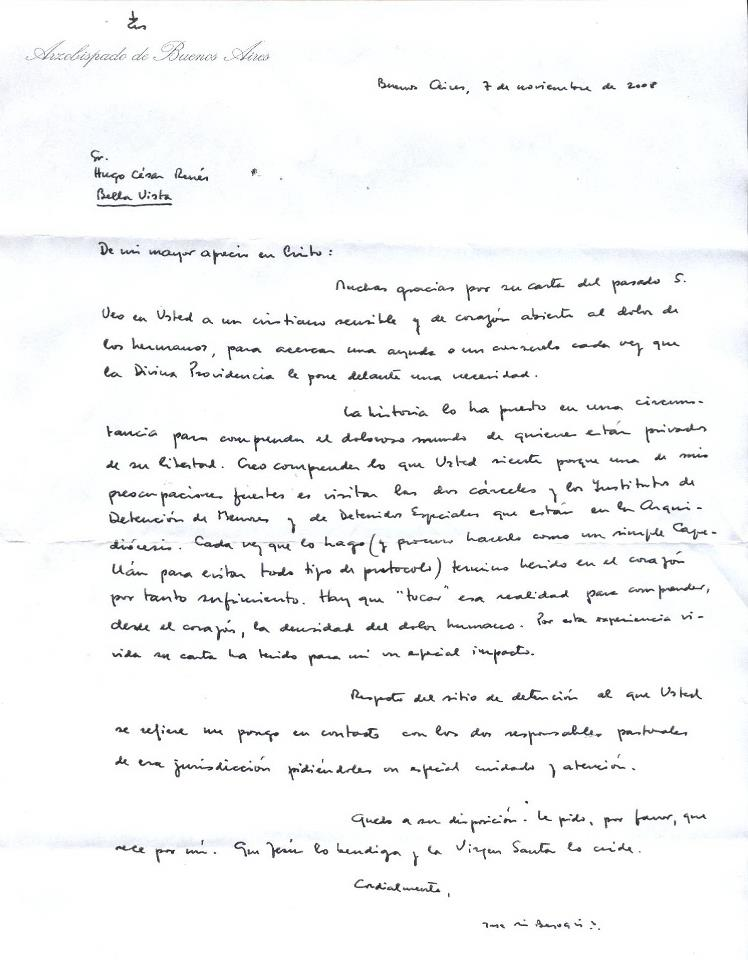 Arzobispado de Buenos Aires
Buenos Aires, 7 de noviembre de 2008
Sr.
Hugo César Renés
Bella Vista
De mi mayor aprecio en Cristo:
Muchas gracias por su carta del pasado 5.
Veo en Usted a un cristiano sensible y de corazón abierto al dolor de
los hermanos, para acercar una ayuda o un consuelo cada vez que
la Divina Providencia le pone delante una necesidad.
La historia lo ha puesto en una circuns-
tancia para comprender el doloroso mundo de quienes están privados
de su libertad. Creo comprender lo que Usted siente porque una de mis
preocupaciones fuertes es visitar las dos cárceles y los Institutos de
Detención de Menores y de Detenidos Especiales que están en la Arqui-
diócesis. Cada vez que lo hago (y procuro hacerlo como un simple Cape-
llán para evitar todo tipo de protocolo) termino herido en el corazón
por tanto sufrimiento. Hay que "tocar" esa realidad para comprender,
desde el corazón, la densidad del dolor humano. Por esta experiencia vi-
vida su carta ha tenido para mí un especial impacto.
Respecto del sitio de detención al que Usted
se refiere me pongo en contacto con los dos responsables pastorales
de esa jurisdicción pidiéndoles un especial cuidado y atención.
Quedo a su disposición. Le pido, por favor, que
rece por mí. Que Jesús lo bendiga y la Virgen Santa lo cuide.
Cordialmente,
Bergoglio